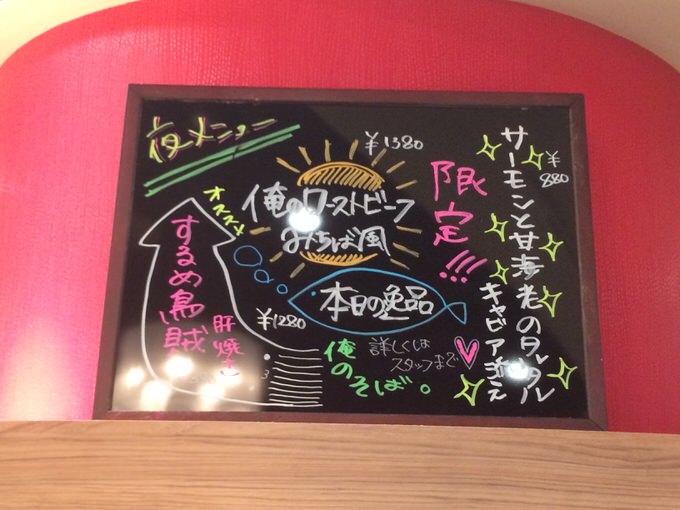 夜メニュー
¥1380
俺のローストビーフ
みちば風
限定!!!
サーモンと甘海老のタルタル
キャビア添え
¥880
オススメ
するめ烏賊
肝焼き
¥1280
本日の逸品
詳しくは
スタッフまで
俺のそば。